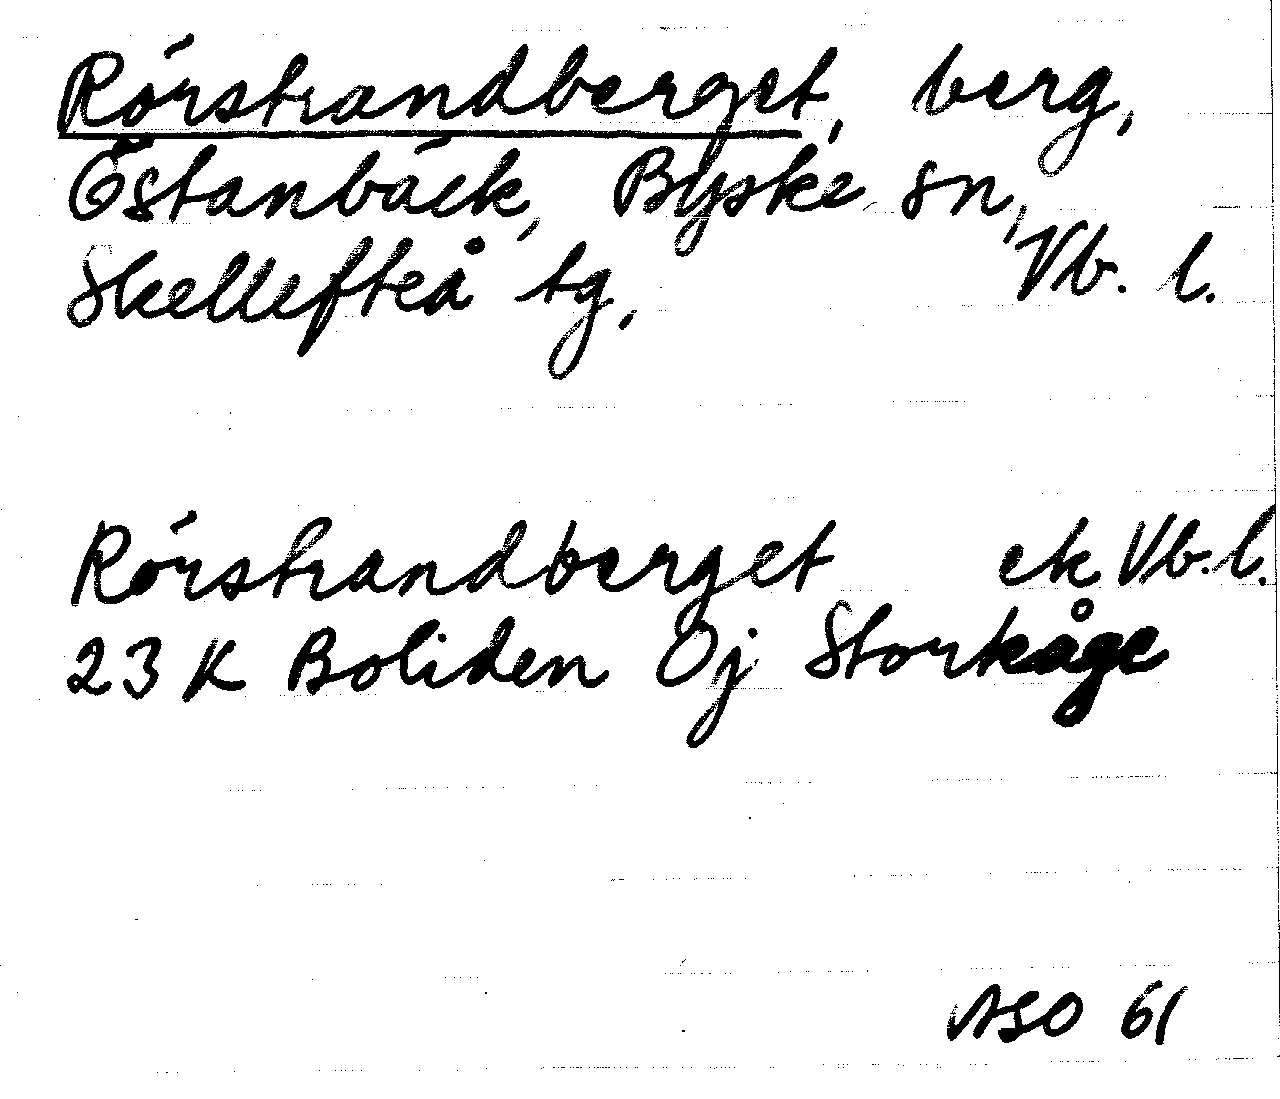 Rörstrandberget, berg,
Östanbäck, Byske sn,
Skellefteå tg, Vb. l.
Rörstrandberget ek Vb. l.
23 K Boliden Oj Storkåge
ASO 61